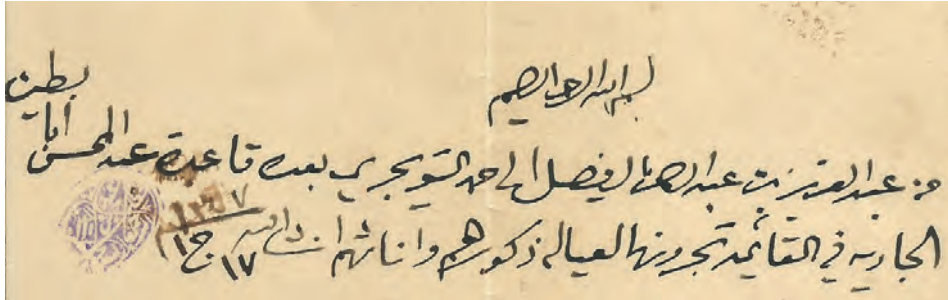 بسم الله الرحمن الرحيم
من عبدالعزيز بن عبدالرحمن الفيصل الى حمد التويجري بعده قاعدة عبدالمحسن ابا بطين
الجاريه في القائمه تجرونها لعياله ذكورهم واناثهم انشاالله ١٧ ج١ ١٣٥٧